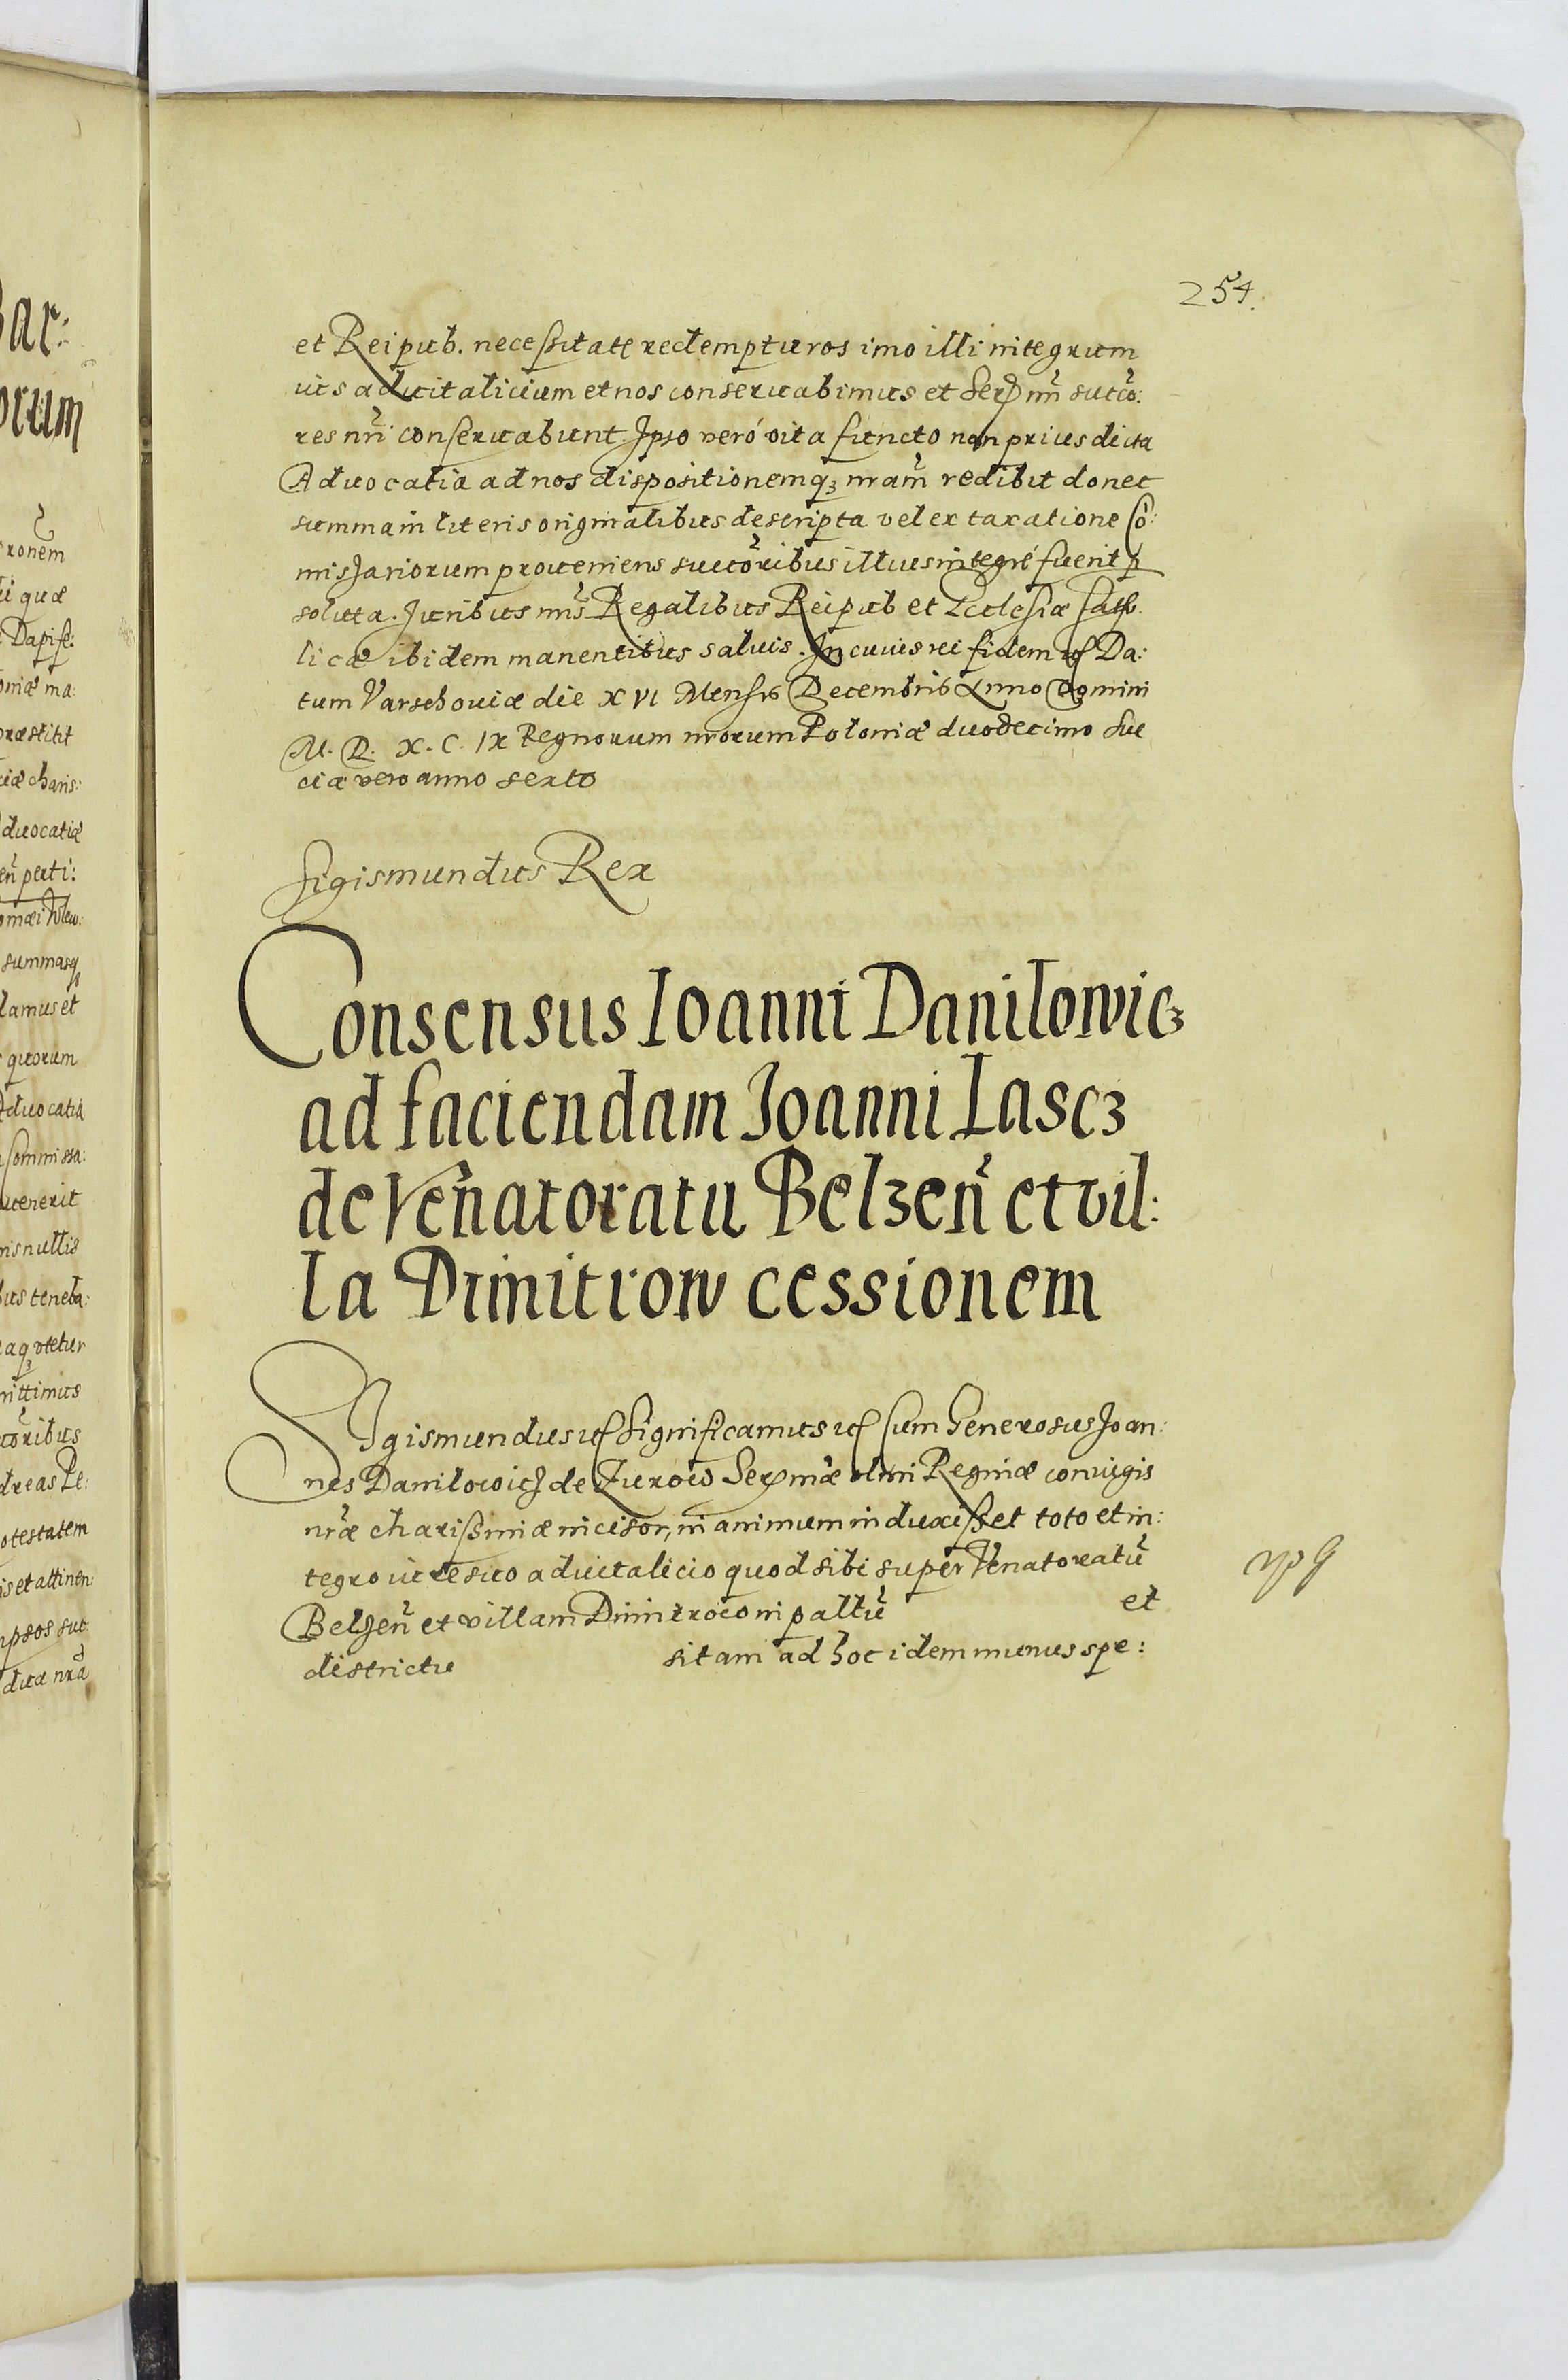 254.
et Reipub. necessitate redempturos imo illi integrum
ius aduitalicium et nos conseruabimus et Ser nri succo:
res nri conseruabunt. Ipso veró vita functo non prius dicta
Aduocatia ad nos dispositionemq nram redibit donec
summa in literis originalibus descripta vel ex taxatione Co:
missariorum proueniens succoribus illius integré fuerit p
soluta. Iuribus nris Regalibus Reipub et Ecclesiæ Catho.
licæ ibidem manentibus saluis. In cuius rei fidem Da:
tum Varschouiæ die XVI Mensis Decembris Anno Domini
M. D. X. C. IX Regnorum nrorum Poloniæ duodecimo Sue
ciæ vero anno sexto
Sigismundus Rex
Consensus Ioanni Danilowicz
ad faciendam Ioanni Lascz
de Venatoratu Belzen et vil:
la Dimitrow cessionem
Sigismundus Significamus Cum Generosus Ioan:
nes Danilowicz de Zurow Ser mæ olim Reginæ coniugis
nræ charissimæ incisor, in animum induxisset toto et in:
tegro iure suo aduitalicio quod sibi super Venatoratu
Belzen et villam Dimitrow in paltu et
districtu sitam ad hoc idem munus spe:
Bar:
orum
ronem
ui quæ
Dapife:
oniæ ma:
præstitit
ciæ charis:
duocatiæ
en perti:
summasq
damus et
quorum
Aduocatia
Commissa:
uenerit
nis nullis
bus teneba:
aq vtetur
mittimus
coribus
dreas Pe:
otestatem
is et attinen:
npsos suc
dua nra